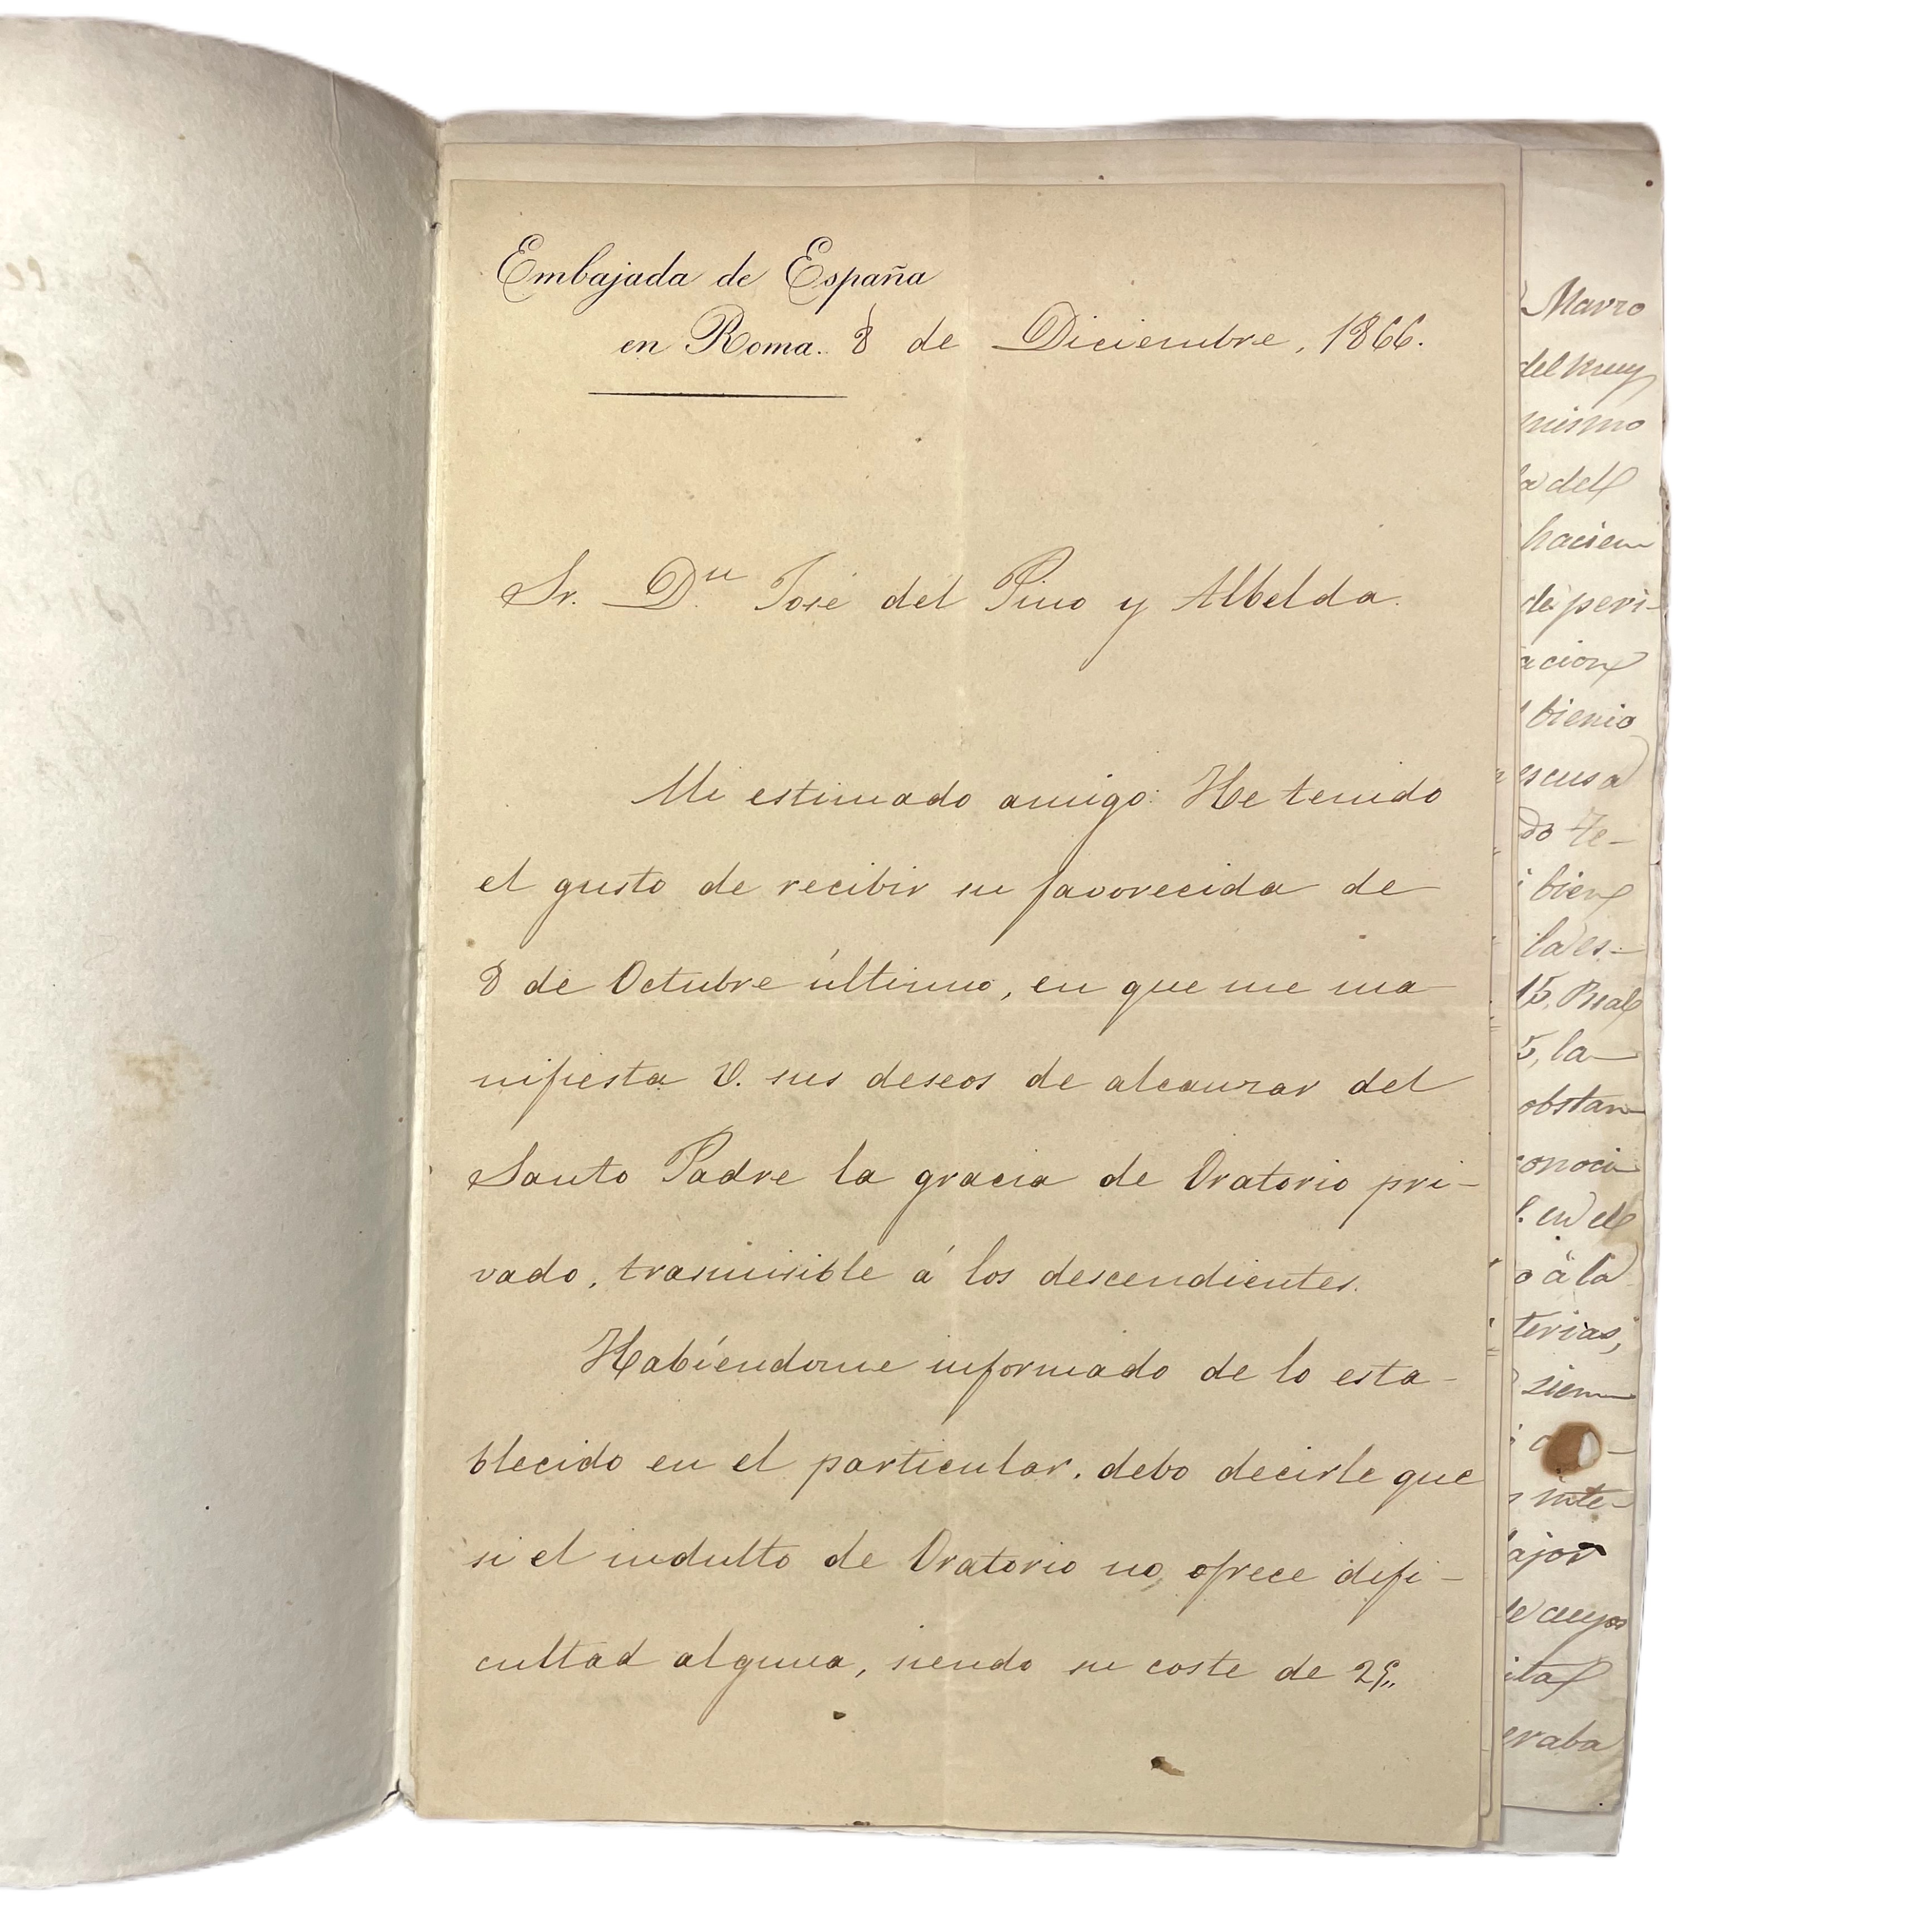 Embajada de España
en Roma. 8 de Diciembre, 1866.
Sr. Dn. José del Pino y Albelda.
Mi estimado amigo: He tenido
el gusto de recibir su favorecida de
8 de Octubre último, en que me ma
nifiesta V. sus deseos de alcanzar del
Santo Padre la gracia de Oratorio pri-
vado, trasmisible á los descendientes.
Habiéndome informado de lo esta-
blecido en el particular, debo decirle que
si el indulto de Oratorio no ofrece difi-
cultad alguna, siendo su coste de
Marzo
del muy
mismo
del
hacien
de peri-
acion
bienio
escusa
do Te-
bien
la es-
15, Real
5, la
obstan
conoci
en el
o á la
terias,
siem
inte-
ajor
de cuyos
ital
eraba